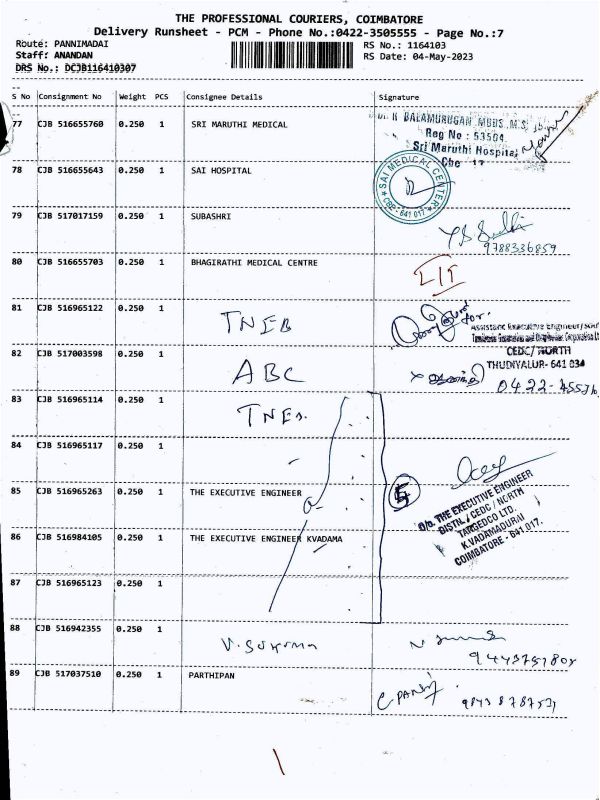 THE PROFESSIONAL COURIERS, COIMBATORE
Delivery Runsheet - PCM - Phone No.:0422-3505555 - Page No.:7
Route: PANNIMADAI
RS No.: 1164103
Staff: ANANDAN
RS Date: 04-May-2023
DRS No.: DCJB116410307
S No Consignment No Weight PCS Consignee Details Signature
77 CJB 516655760 0.250 1 SRI MARUTHI MEDICAL
BALAMURUGAN MBBS M.S
Reg No : 53504
Sri Maruthi Hospital
Cbe - 17
78 CJB 516655643 0.250 1 SAI HOSPITAL
SAI MEDICAL CENTER
CBE - 641 017
79 CJB 517017159 0.250 1 SUBASHRI
9788336859
80 CJB 516655703 0.250 1 BHAGIRATHI MEDICAL CENTRE
81 CJB 516965122 0.250 1 TNEB
Assistant Executive Engineer
82 CJB 517003598 0.250 1 ABC
CEDC / NORTH
THUDIYALUR- 641 034
83 CJB 516965114 0.250 1 TNEB
84 CJB 516965117 0.250 1
85 CJB 516965263 0.250 1 THE EXECUTIVE ENGINEER
5
O/o. THE EXECUTIVE ENGINEER
DISTN. / CEDC / NORTH
TANGEDCO LTD.
K.VADAMADURAI
COIMBATORE - 641 017.
86 CJB 516984105 0.250 1 THE EXECUTIVE ENGINEER KVADAMA
87 CJB 516965123 0.250 1
88 CJB 516942355 0.250 1
89 CJB 517037510 0.250 1 PARTHIPAN